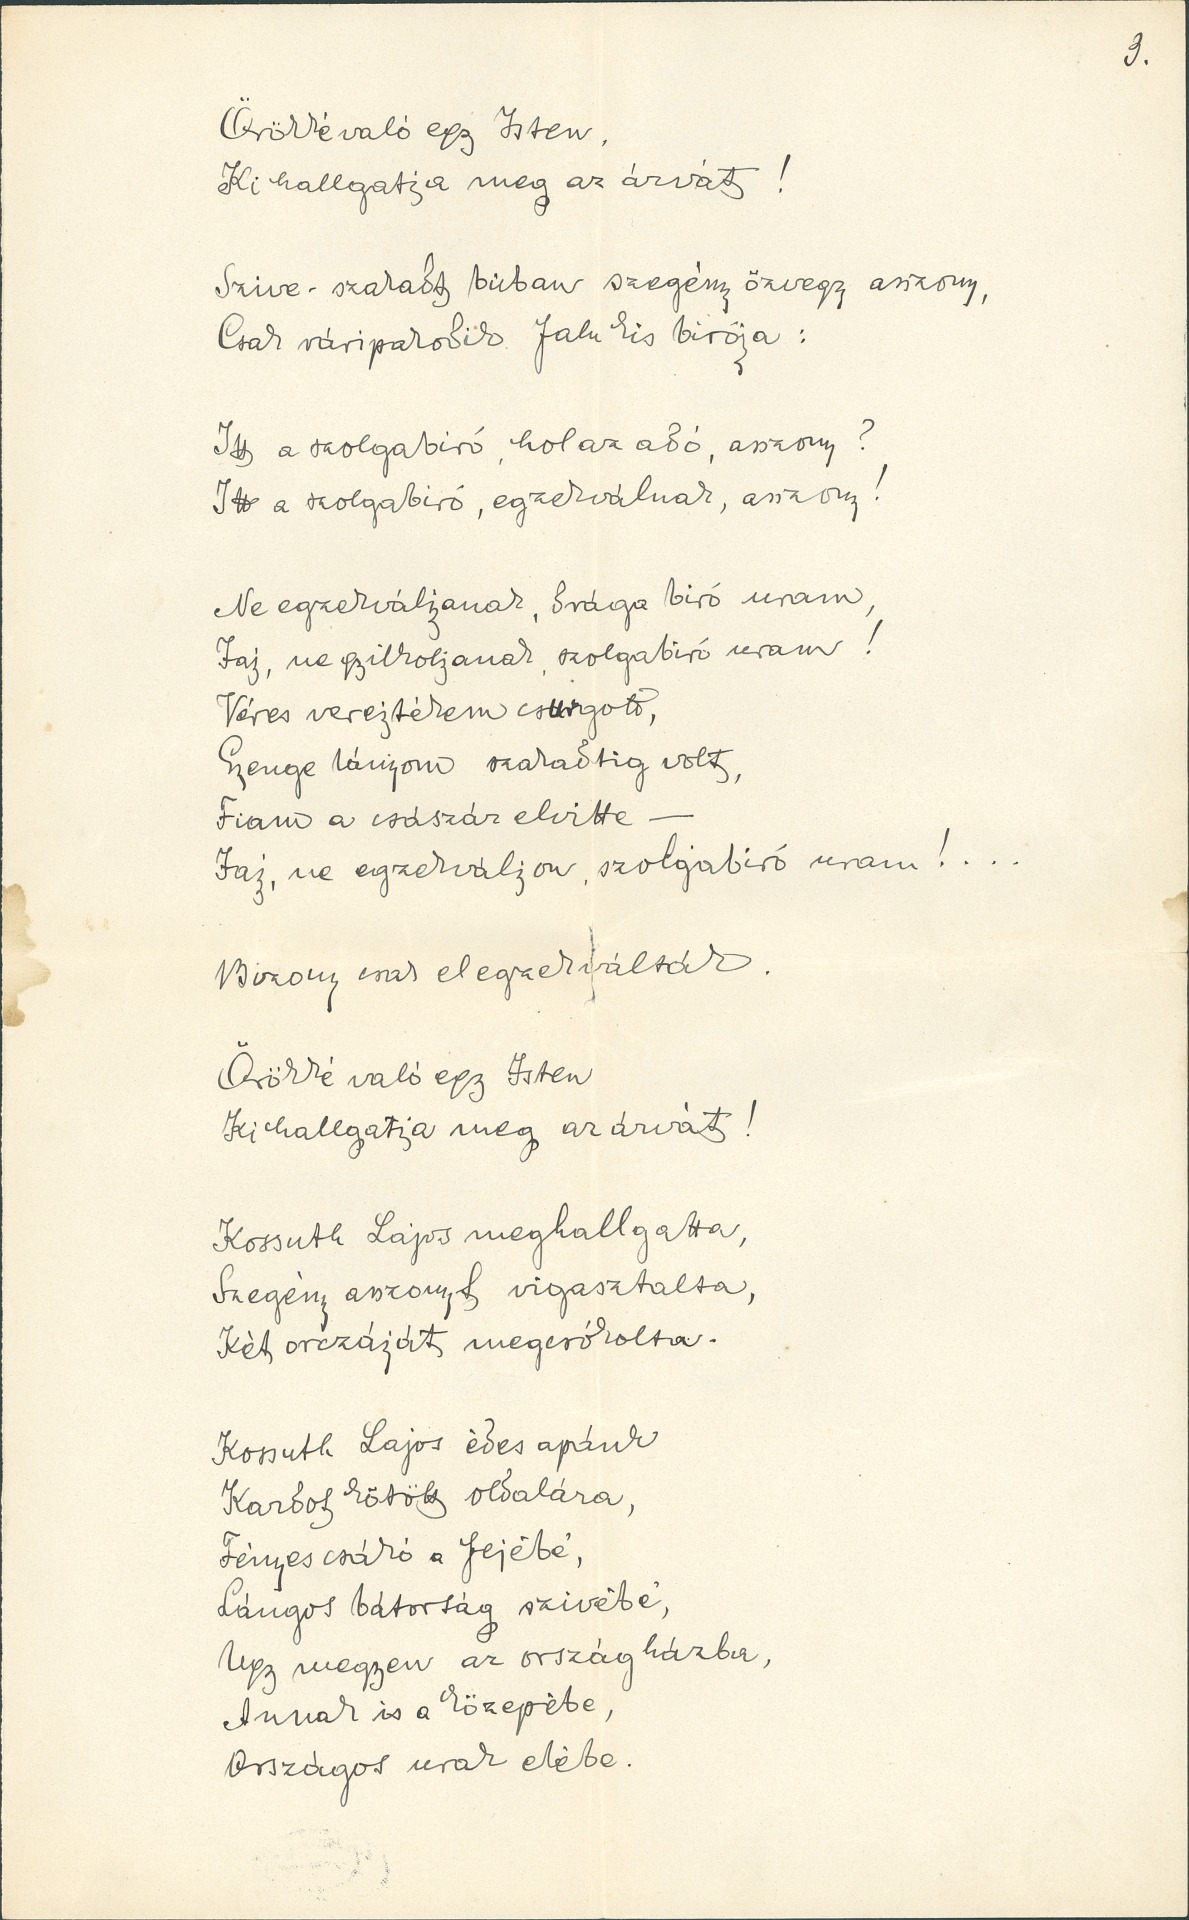 3.
Örökké való egy Isten,
Ki hallgatja meg az árvát!
Szive-szakadt búban szegény özvegy asszony,
Csak ráripakodik falu kis birója:
Itt a szolgabiró, hol az adó, asszony?
Itt a szolgabiró, egzekválnak, asszony!
Ne egzekváljanak, drága biró uram,
Jaj, ne gyilkoljanak, szolgabiró uram!
Véres verejtékem csurgott,
Gyenge lányom szakadtig volt,
Fiam a császár elvitte —
Jaj, ne egzekváljon, szolgabiró uram!...
Bizony csak elegzekválták.
Örökké való egy Isten
Ki hallgatja meg az árvát!
Kossuth Lajos meghallgatta,
Szegény asszonyt vigasztalta,
Két orczáját megcsókolta.
Kossuth Lajos édes apánk
Kardot kötött oldalára,
Fényes csákó a fejébe,
Lángos bátorság szivébe,
Ugy megyen az országházba,
Annak is a közepébe,
Országos urak elébe.